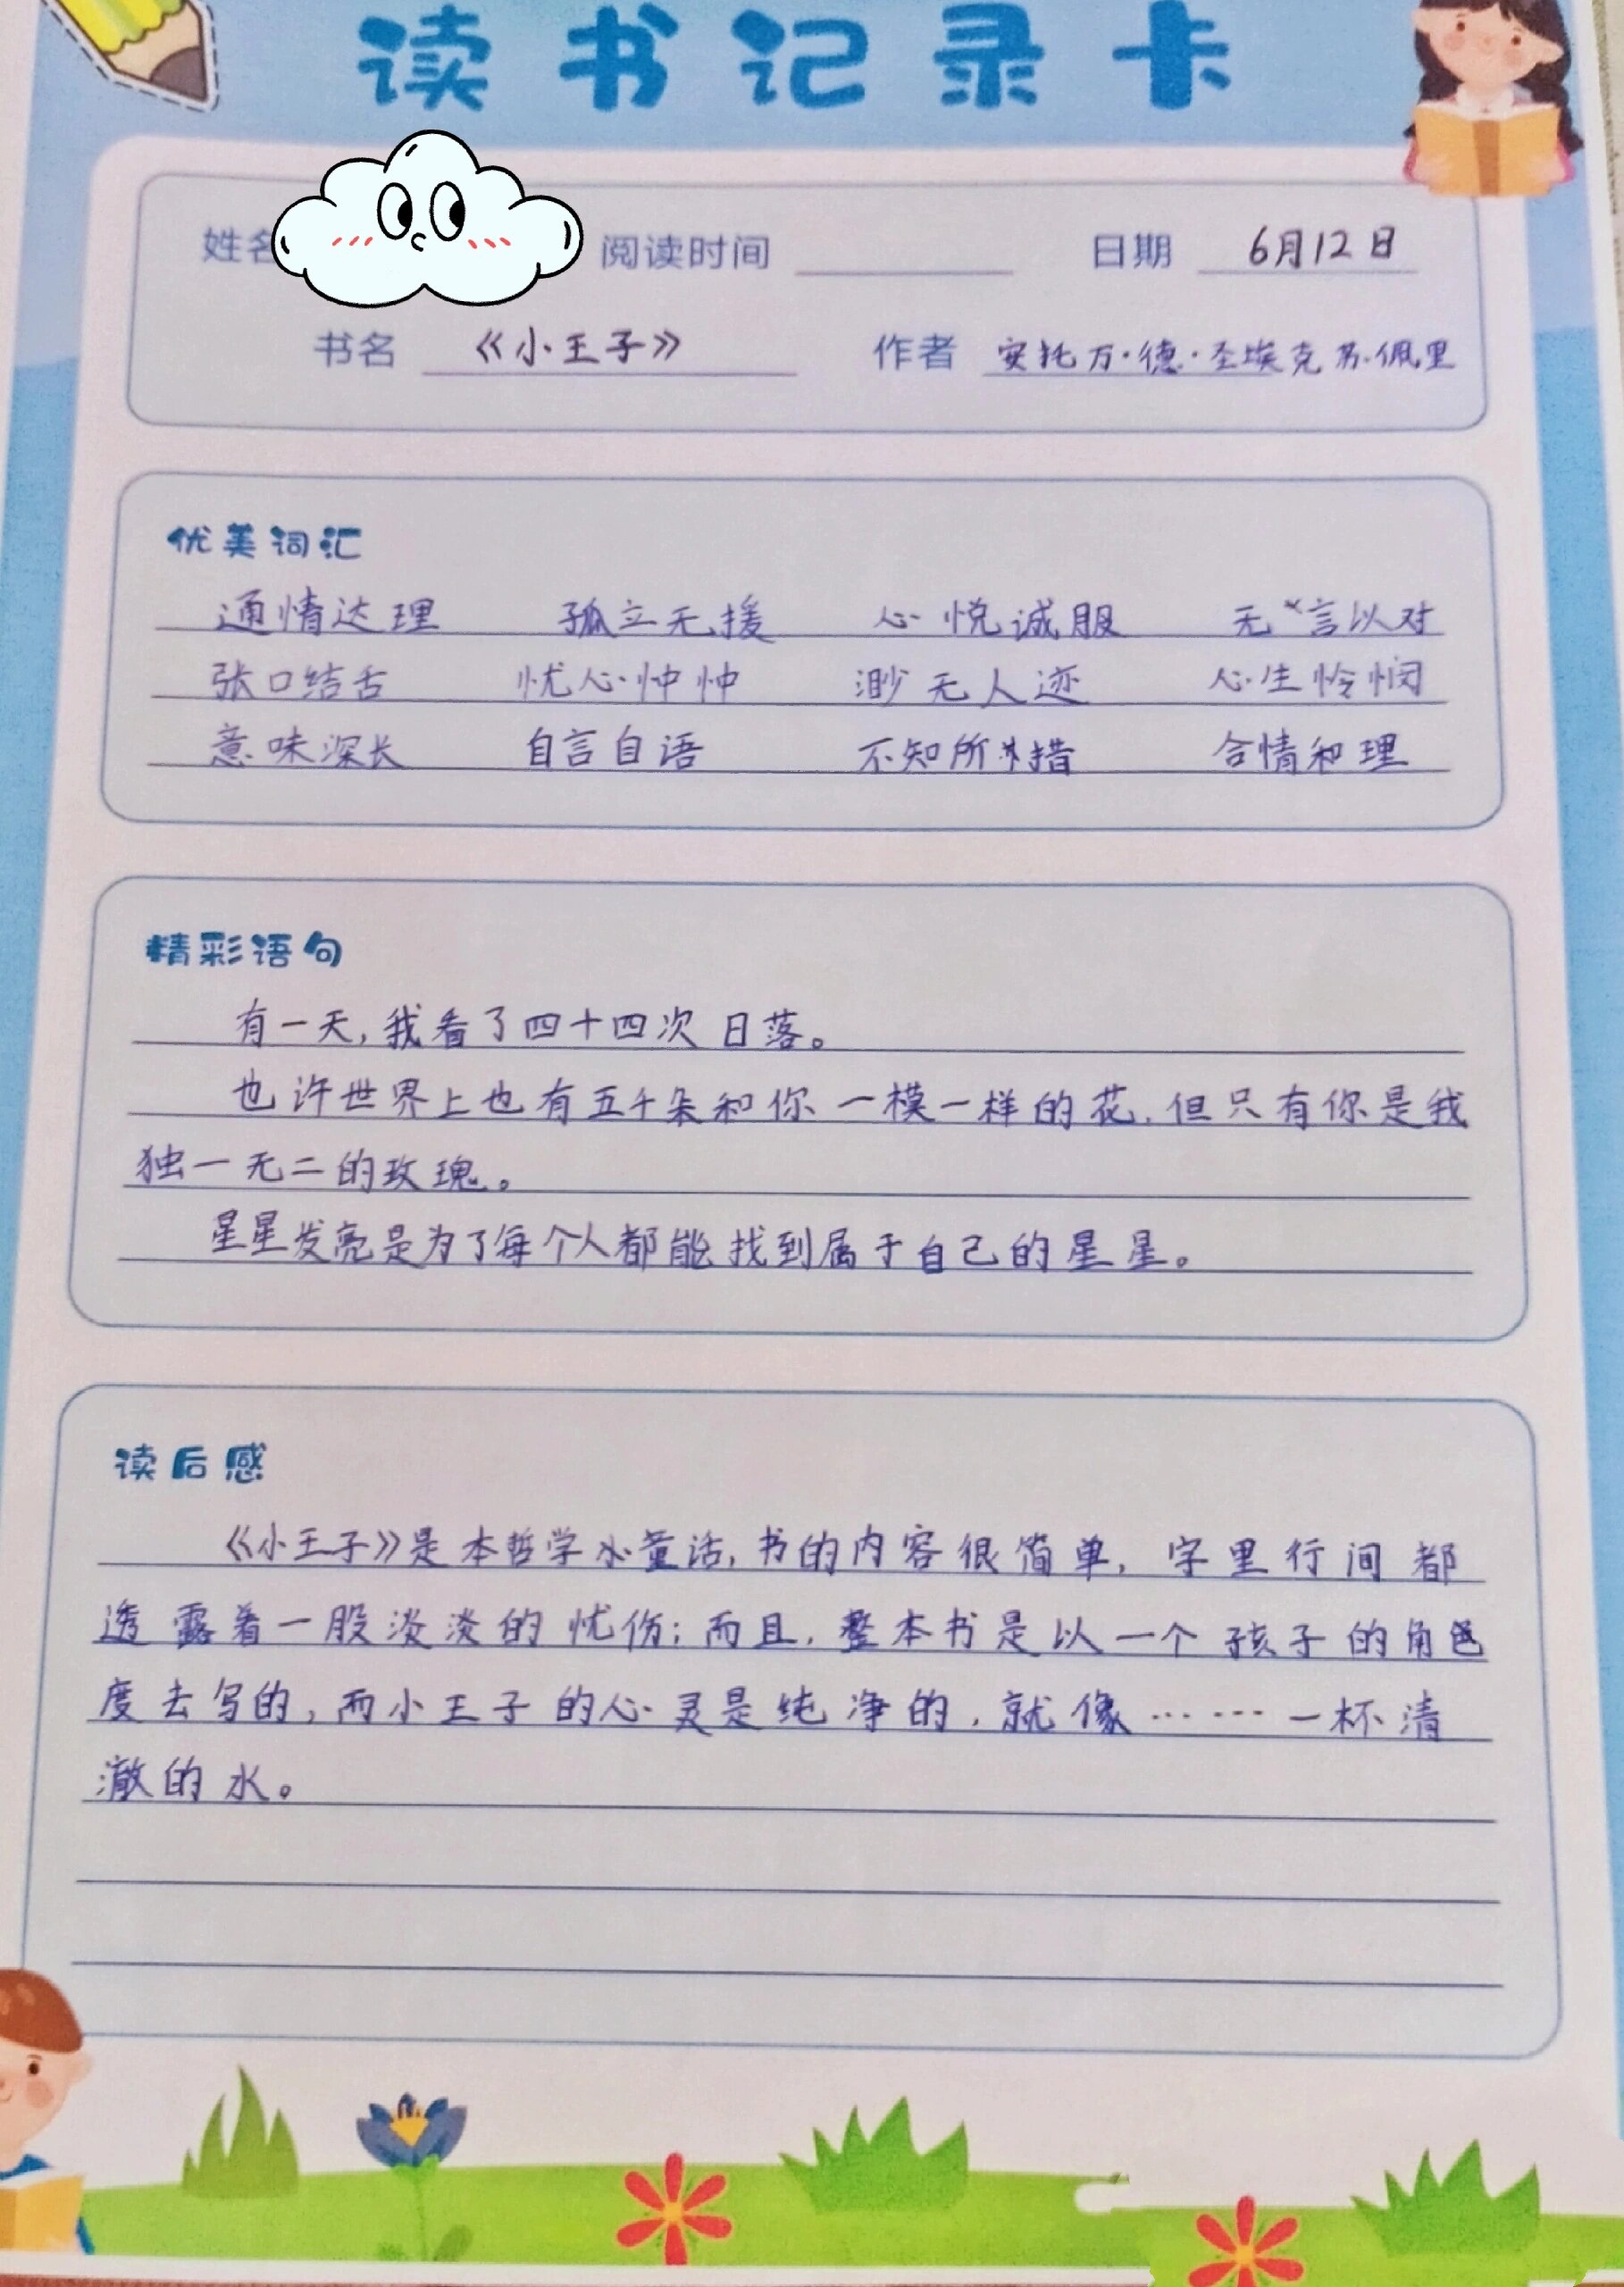 读书记录卡
姓名 阅读时间 日期 6月12日
书名 《小王子》 作者 安托万·德·圣埃克苏佩里
优美词汇
通情达理 孤立无援 心悦诚服 无言以对
张口结舌 忧心忡忡 渺无人迹 心生怜悯
意味深长 自言自语 不知所措 合情和理
精彩语句
有一天,我看了四十四次日落。
也许世界上也有五千朵和你一模一样的花,但只有你是我
独一无二的玫瑰。
星星发亮是为了每个人都能找到属于自己的星星。
读后感
《小王子》是本哲学小童话,书的内容很简单,字里行间都
透露着一股淡淡的忧伤;而且,整本书是以一个孩子的角
度去写的,而小王子的心灵是纯净的,就像……一杯清
澈的水。